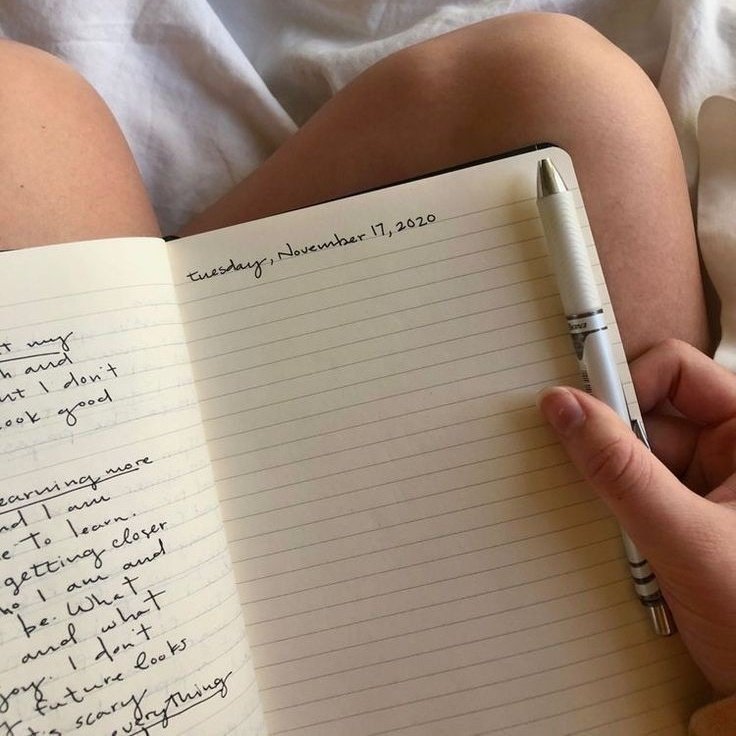 t my
h and
ut I don't
ook good
earning more
nd I am
e to learn.
getting closer
ho I am and
be. What
and what
joy. I don't
future looks
t's scary
everything
tuesday, November 17, 2020